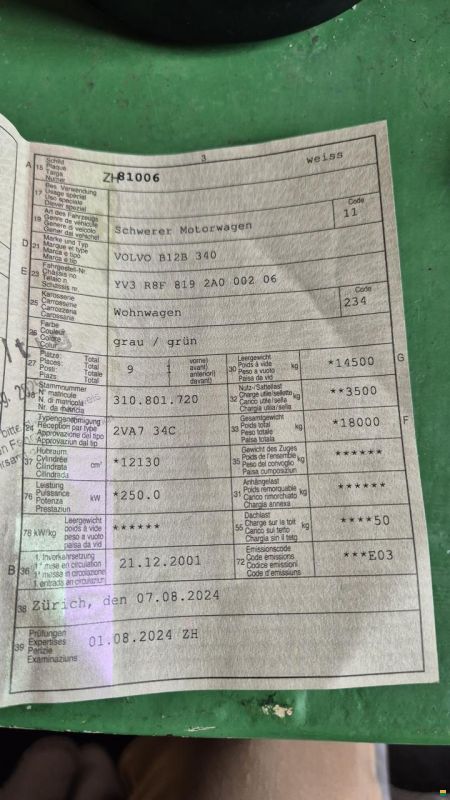 3
A 15 Schild Plaque Targa Numer ZH 81006 weiss
17 Bes. Verwendung Usage spécial Uso speciale Diever spezial
19 Art des Fahrzeugs Genre de véhicule Genere di veicolo Gener dal vehichel Schwerer Motorwagen Code 11
D 21 Marke und Typ Marque et type Marca e tipo Marca e tip VOLVO B12B 340
E 23 Fahrgestell-Nr. Châssis no Telaio n. Schassis nr. YV3 R8F 819 2A0 002 06
25 Karosserie Carrosserie Carrozzeria Carossaria Wohnwagen Code 234
26 Farbe Couleur Colore Colur grau / grün
27 Plätze: Total Places: Total Posti: Totale Plazs: Total 9 1 vorne) avant) anteriori) davant) 30 Leergewicht Poids à vide Peso a vuoto Paisa da vid kg *14500 G
18 Stammnummer N° matricule N. di matricola Nr. da maricla 310.801.720 32 Nutz-/Sattellast Charge utile/sellette Carico utile/sella Chargia utila/sella kg **3500
24 Typengenehmigung Réception par type Approvazione del tipo Approvaziun dal tip 2VA7 34C 33 Gesamtgewicht Poids total Peso totale Paisa totala kg *18000 F
37 Hubraum Cylindrée Cilindrata Cilindrada cm³ *12130 35 Gewicht des Zuges Poids de l'ensemble Peso del convoglio Paisa cumposiziun kg ******
76 Leistung Puissance Potenza Prestaziun kW *250.0 31 Anhängelast Poids remorquable Carico rimorchiato Chargia annexa kg ******
78 kW/kg Leergewicht poids à vide peso a vuoto paisa da vid ****** 55 Dachlast Charge sur le toit Carico sul tetto Chargia sin il tetg kg ****50
B 36 1. Inverkehrsetzung 1re mise en circulation 1a messa in circolazione 1. entrada en circulaziun 21.12.2001 72 Emissionscode Code émissions Codice emissioni Code d'emissiuns ***E03
38 Zürich, den 07.08.2024
39 Prüfungen Expertises Perizie Examinaziuns 01.08.2024 ZH